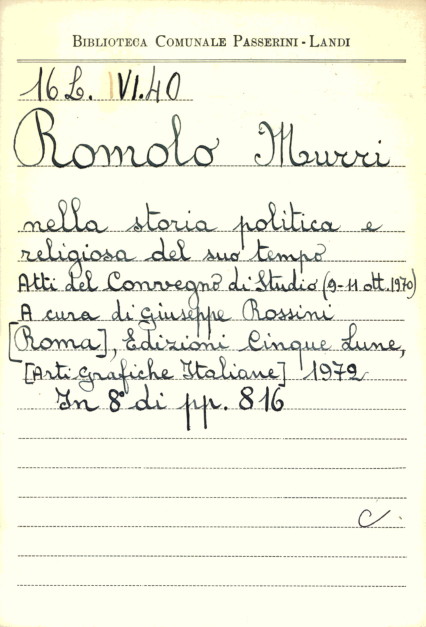 BIBLIOTECA COMUNALE PASSERINI - LANDI
16 L. VI.40
Romolo Murri
nella storia politica e
religiosa del suo tempo
Atti del Convegno di Studio (9-11 ott. 1970)
A cura di Giuseppe Rossini
[Roma], Edizioni Cinque Lune,
[Arti Grafiche Italiane] 1972
In 8° di pp. 816
C.